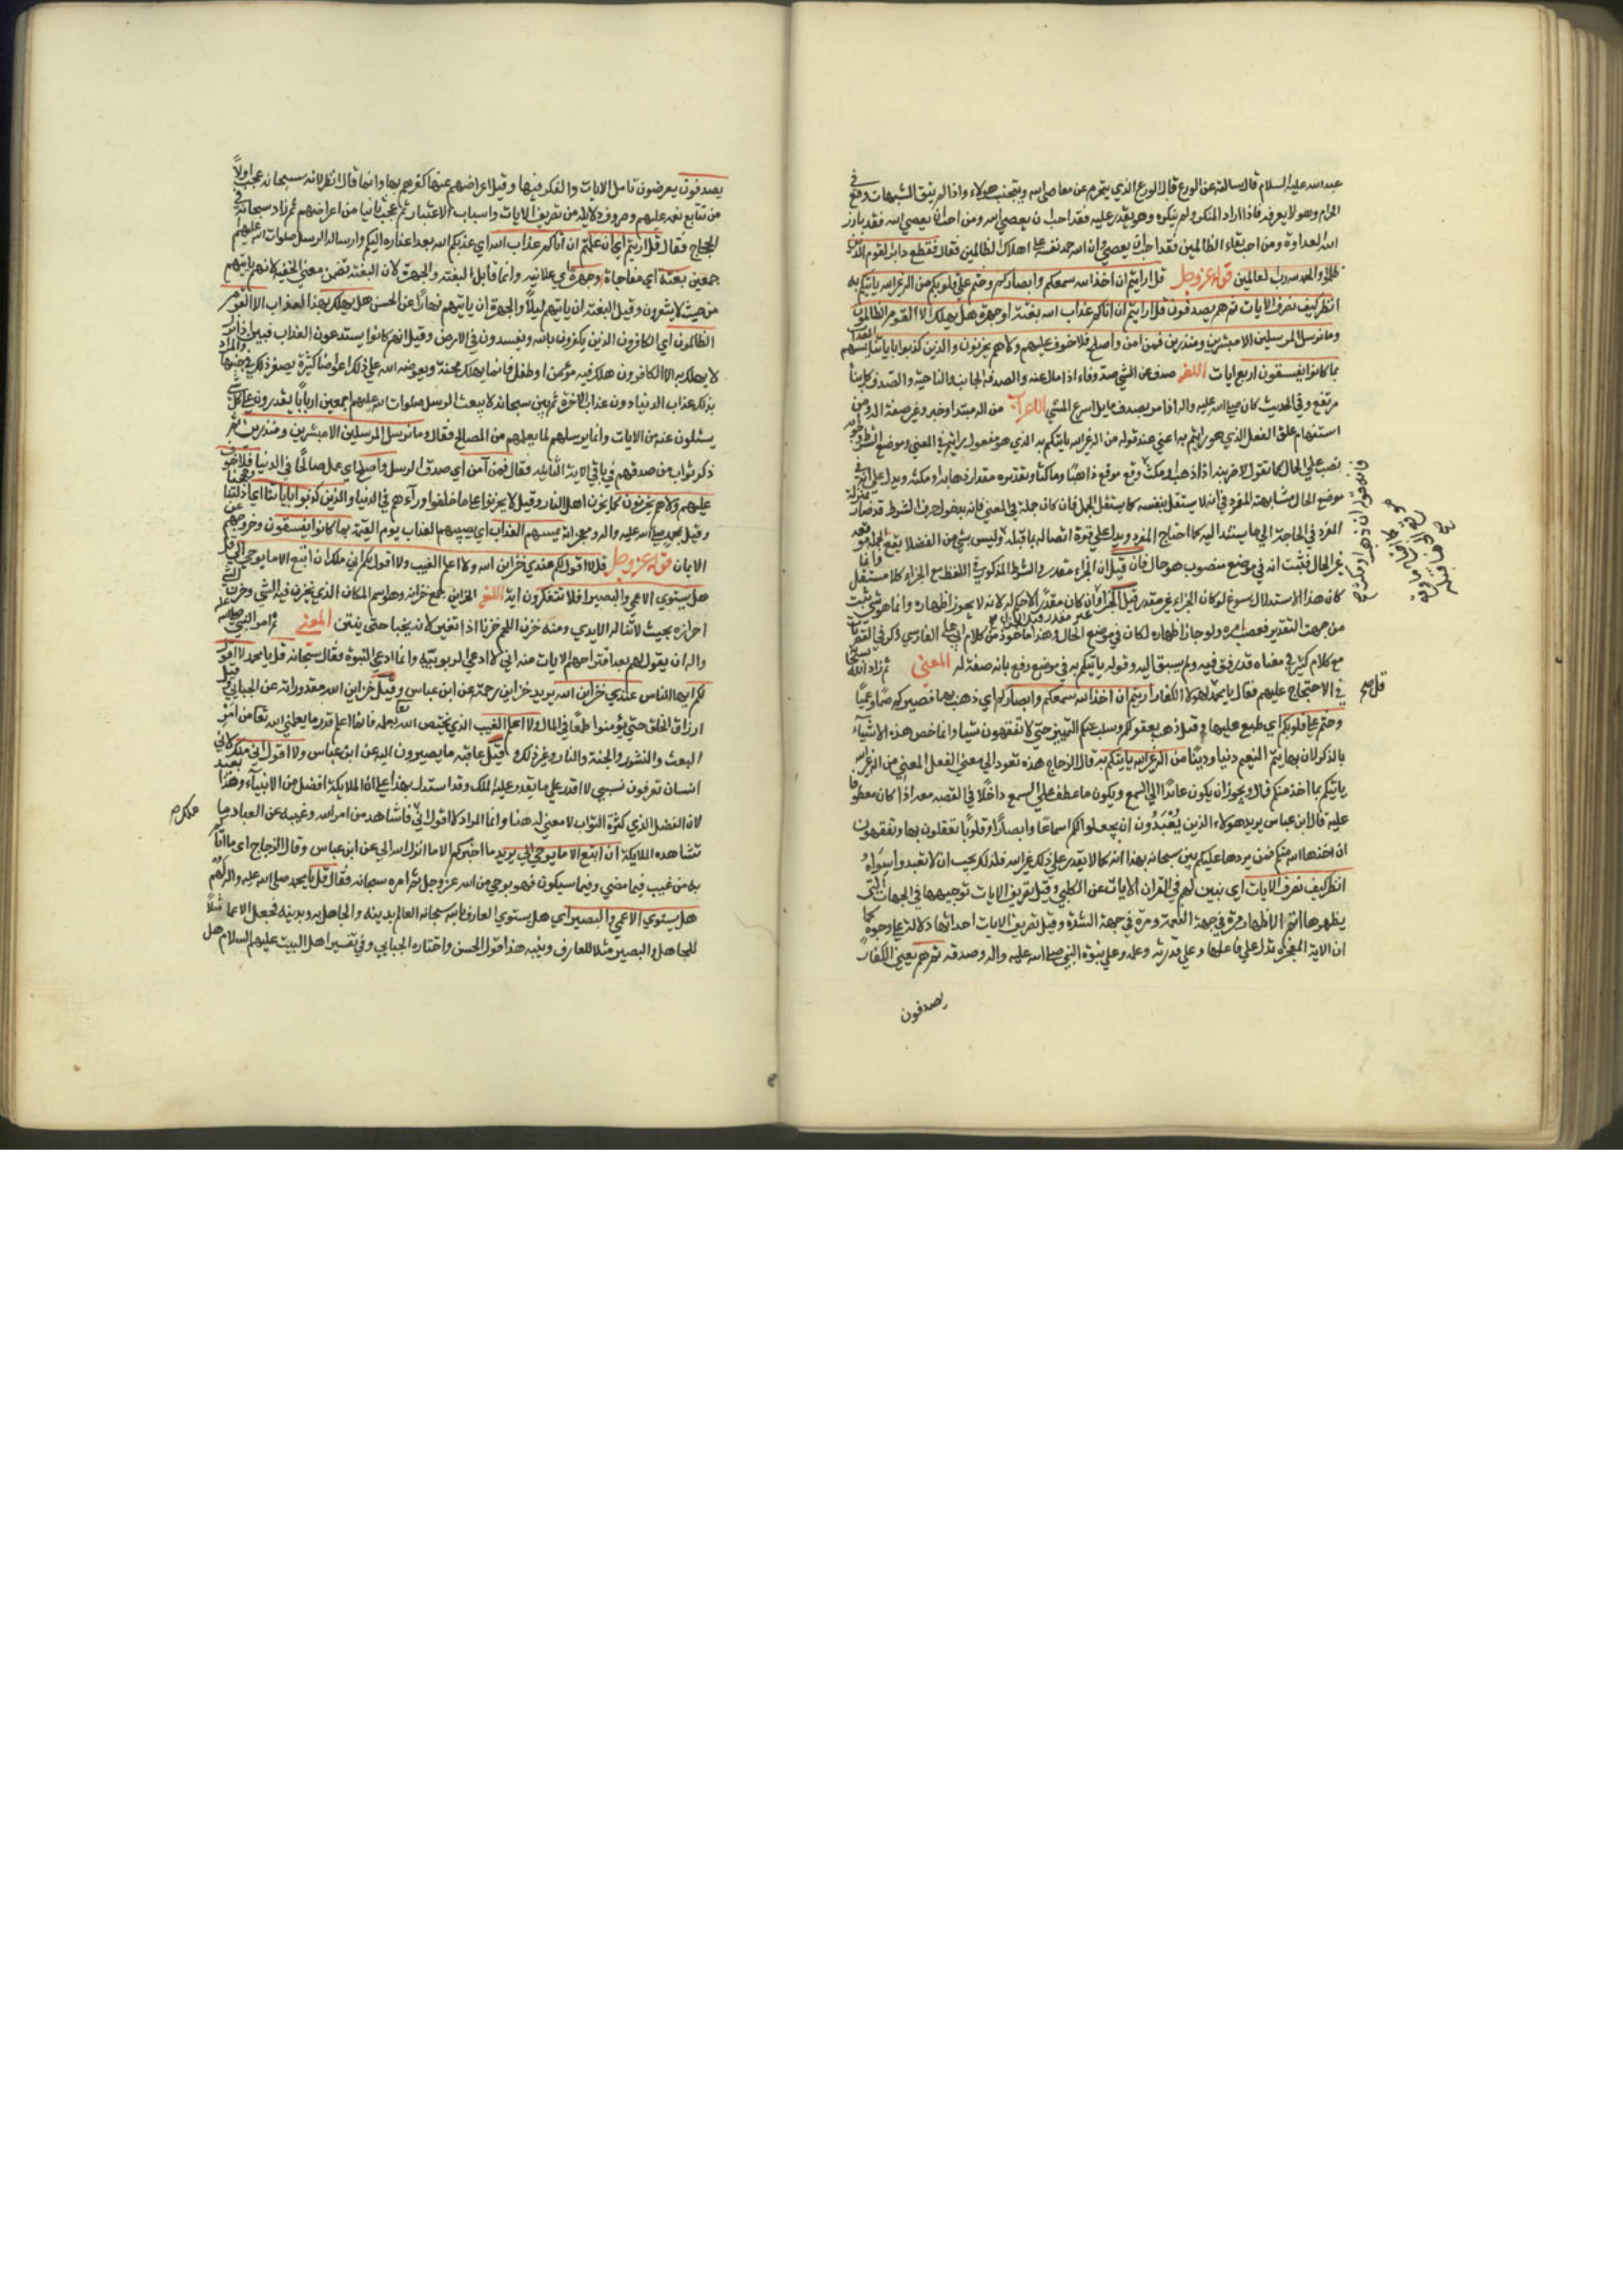 عبدالله عليه السلام قال سالته عن الورع قال الورع الذي يتحرم عن معاصي الله ويتجنب هولاء واذا لم يتق الشبهات وقع في
الحرام وهو لا يعرفه فاذا راد المنكر ولم ينكره وهو يقدر عليه فقد احب ان يعصي الله ومن احب ان يعصي الله فقد بارز
الله بالعداوة ومن احب بقاء الظالمين فقد احب ان يعصي وان الله حمد نفسه على اهلاك الظالمين فقال فقطع دابر القوم الذين
ظلموا والحمد لله رب العالمين قوله عز وجل قل ارايتم ان اخذ الله سمعكم وابصاركم وختم على قلوبكم من اله غير الله ياتيكم به
انظر كيف نصرف الايات ثم هم يصدفون قل ارايتم ان اتاكم عذاب الله بغتة او جهرة هل يهلك الا القوم الظالمون
وما نرسل المرسلين الا مبشرين ومنذرين فمن امن واصلح فلا خوف عليهم ولا هم يحزنون والذين كذبوا باياتنا يمسهم العذاب
بما كانوا يفسقون اربع ايات اللغة صدف عن الشي اذا مال عنه والصدف الجانب والناحية والصدف كل بناء
مرتفع وفي الحديث كان صلى الله عليه واله اذا مر بصدف مايل اسرع المشي الاعراب من اله مبتدا وخبر وغير صفة اله ومن
استفهام علق الفعل الذي هو ارايتم اعني عند قوله من اله غير الله ياتيكم به الذي هو مفعول رايتم في المعني وموضع الشرط وجوابه
نصب على الحال كما تقول لاضربنه ان ذهب او مكث وقع موقع ذاهبا وماكثا وتقديره مقدرا ذهابه او مكثه ويدل على انه في
موضع الحال مشابهته المفرد في انه لا يستقل بنفسه كما يستقل الجمل فان كان جملة في المعني فانه بدخول حرف الشرط قد صار بمنزلة
المفرد في الحاجة الي ما يستند اليه كما احتاج المفرد ويدل على قوة اتصاله بما قبله وليس بشي من الفضلا يقع الجمله موقعه
غير الحال فثبت انه في موضع منصوب هو حال فان قيل ان الجزاء مقدر والشرط المذكور في اللفظ مع الجزاء كلام مستقل وانما
كان هذا الاستدلال يسوغ لو كان الجزاء غير مقدر قيل الجزاء وان كان مقدرا لا حكم له لانه لا يجوز اظهاره وانما هو شي يثبت
من جهة التقدير فضعف امره ولو جاز اظهاره لكان في موضع الحال وهذا ماخوذ من كلام ابي علي الفارسي ذكره في القصريات
مع كلام كثير في معناه قد دقق فيه ولم يسبق اليه وقوله ياتيكم به في موضع رفع بانه صفة له المعني ثم زاد الله سبحانه
في الاحتجاج عليهم فقال يا محمد لهولاء الكفار ارايتم ان اخذ الله سمعكم وابصاركم اي ذهب بهما فصيركم صما وعميا
وختم على قلوبكم اي طبع عليها وقيل ذهب بعقولكم وسلب عنكم التمييز حتى لا تفقهون شيا وانما خص هذه الاشياء
بالذكر لان بها يتم النعيم دنيا ودينا من اله غير الله ياتيكم به قال الزجاج هذه تعود الي معني الفعل المعني من اله غير الله
ياتيكم بما اخذ منكم قال ويجوز ان يكون عائدا الي السمع ويكون ما عطف على السمع داخلا في القصه معه اذا كان معطوفا
عليه قال ابن عباس يريد هولاء الذين يعبدون ان يجعلوا لكم اسماعا وابصارا وقلوبا تعقلون بها وتفقهون
ان اخذها الله منكم فمن يردها عليكم بين سبحانه بهذا انه كما لا يقدر على ذلك غير الله فلذلك يجب ان لا تعبدوا سواه
انظر كيف نصرف الايات اي نبين لهم في القران الايات عن الكلبي وقيل تصريف الايات توجيهها في الجهات التي
يظهرها اتم الاظهار مرة في جهة النعمة ومرة في جهة الشدة وقيل تصريف الايات احداثها دلالة على وجوه كما
ان الاية المعجزة تدل على فاعلها وعلى قدرته وعلمه وعلى نبوة النبي صلى الله عليه واله وصدقه ثم هم يعني الكفار
يصدفون
يصدفون يعرضون تامل الايات والفكر فيها وقيل اعراضهم عنها كفرهم بها وانما قال انظر لانه سبحانه عجب اولا
من تتابع نعمه عليهم وصروف دلالله من تصريف الايات واسباب الاعتبار ثم عجب ثانيا من اعراضهم ثم زاد سبحانه في
الحجاج فقال قل ارايتم اي ان علمتم ان اتاكم عذاب الله اي عذبكم الله بعد اعذاره اليكم وارساله الرسل صلوات الله عليهم
اجمعين بغتة اي مفاجاة وجهرة اي علانيه وانما قابل البغته والجهرة لان البغته تتضمن معني الخفيه لانهم ياتيهم
من حيث لا يشعرون وقيل البغتة ان ياتيهم ليلا والجهرة ان ياتيهم نهارا عن الحسن هل يهلك بهذا العذاب الا القوم
الظالمون اي الكافرون الذين يكفرون بالله ويفسدون في الارض وقيل انهم كانوا يستدعون العذاب فبين انه
لا يهلك به الا الكافرون هلك فيه مؤمن او طفل فانما يهلك محنة ويعوضه الله على ذلك اعواضا كثيرة يصغر ذلك في جنبها والمراد
بذلك عذاب الدنيا دون عذاب الاخرة ثم بين سبحانه لا يبعث الرسل صلوات الله عليهم اجمعين اربابا يقدرون على كل شي
يسئلون عنه من الايات وانما يرسلهم لما يعلمهم من المصالح فقال وما نرسل المرسلين الا مبشرين ومنذرين ثم
ذكر ثواب من صدقهم في باقي الاية الثانيه فقال فمن آمن اي صدق الرسل واصلح اي عمل صالحا في الدنيا فلا خوف
عليهم ولا هم يحزنون كما يحزن اهل النار وقيل لا يحزنوا على ما خلفوا وراءهم في الدنيا والذين كذبوا باياتنا اي دلتنا وحججنا
وقيل بمحمد صلى الله عليه واله ومعجزاته يمسهم العذاب اي يصيبهم العذاب يوم القيمة بما كانوا يفسقون وخروجهم عن
الايمان قوله عز وجل قل لا اقول لكم عندي خزاين الله ولا اعلم الغيب ولا اقول لكم اني ملك ان اتبع الا ما يوحي الي قل
هل يستوي الاعمي والبصير افلا تتفكرون اية اللغة الخزاين جمع خزانه وهو اسم المكان الذي يخزن فيه الشي وخزن الشي
احرازه بحيث لا تناله الايدي ومنه خزن اللحم خزنا اذا تغير لانه يخبا حتى ينتن المعني ثم امر النبي صلى الله عليه
واله ان يقول لهم بعد اقتراحهم الايات منه اني لا ادعي الربوبيه وانما ادعي النبوة فقال سبحانه قل يا محمد لا اقول
لكم ايها الناس عندي خزاين الله يريد خزاين رحمة عن ابن عباس وقيل خزاين الله مقدوراته عن الجبائي وقيل
ارزاق الخلق حتى يؤمنوا طمعا في المال ولا اعلم الغيب الذي يختص الله تعالى بعلمه فانما اعلم قدر ما يعلمني الله تعالى من امر
البعث والنشور والجنة والنار وغير ذلك وقيل عاقبه ما يصيرون اليه عن ابن عباس ولا اقول اني ملك لاني
انسان تعرفون نسبي لا اقدر على ما يقدر عليه الملك وقد استدل بهذا على ان الملايكة افضل من الانبياء وهذا بعيد
لان الفضل الذي كثرة الثواب لا معني له هنا وانما المراد لا اقول اني فاشاهد من امر الله وغيبه عن العباد ما
تشاهده الملايكة ان اتبع الا ما يوحي الي يريد ما اخبركم الا ما انزل الله الي عن ابن عباس وقال الزجاج اي ما انبأتكم
به من غيب فيما مضي وفيما سيكون فهو بوحي من الله عز وجل ثم امره سبحانه فقال قل يا محمد صلى الله عليه واله لهم
هل يستوي الاعمي والبصير اي هل يستوي العارف بالله سبحانه العالم بدينه والجاهل به وبدينه فجعل الاعما مثلا
للجاهل والبصير مثلا للعارف وبنبيه هذا قول الحسن واختاره الجبايي وفي تفسير اهل البيت عليهم السلام هل